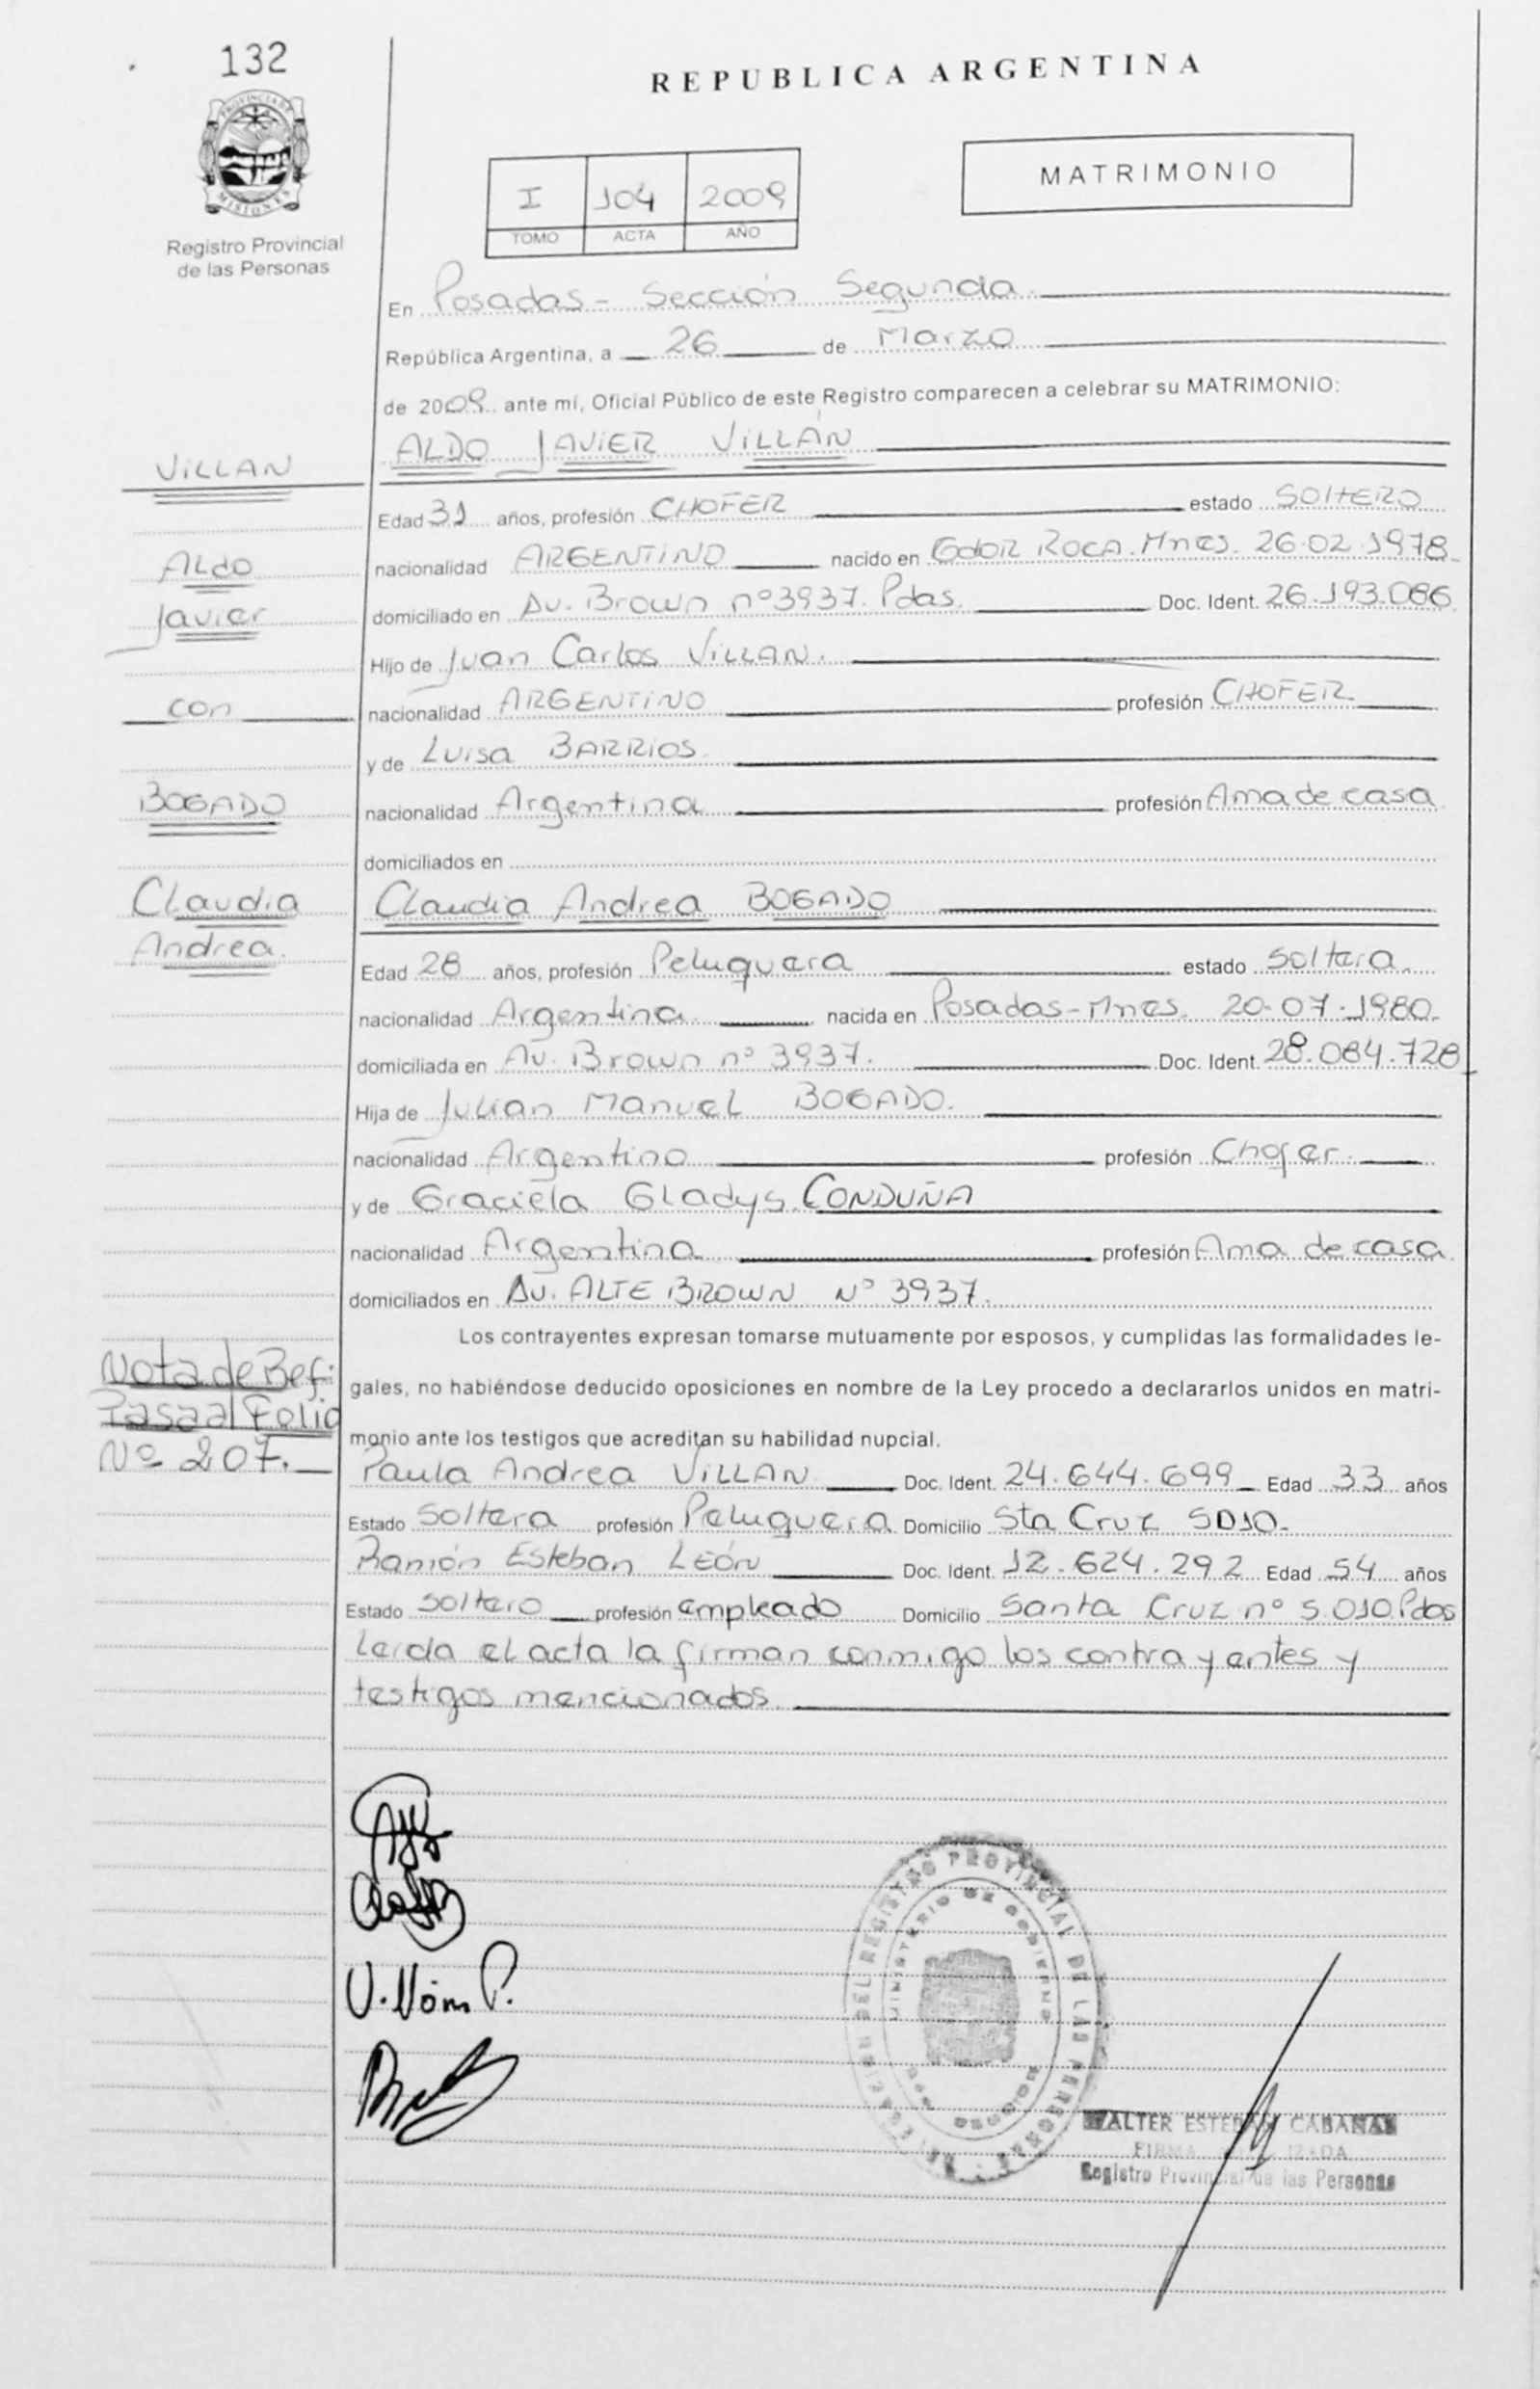 132
REPUBLICA ARGENTINA
PROVINCIA DE
MISIONES
Registro Provincial
de las Personas
I 104 2009
TOMO ACTA AÑO
MATRIMONIO
En Posadas - Sección Segunda.
República Argentina, a 26 de Marzo
de 2009 ante mí, Oficial Público de este Registro comparecen a celebrar su MATRIMONIO:
ALDO JAVIER VILLÁN
VILLAN
Edad 31 años, profesión CHOFER estado SOLTERO
Aldo
nacionalidad ARGENTINO nacido en Gdor ROCA. Mnes. 26.02.1978
Javier
domiciliado en Av. Brown nº 3937. Pdas. Doc. Ident. 26.193.086
Hijo de Juan Carlos VILLAN.
con
nacionalidad ARGENTINO profesión CHOFER.
y de Luisa BARRIOS
BOGADO
nacionalidad Argentina profesión Ama de casa
domiciliados en
Claudia
Claudia Andrea BOGADO
Andrea.
Edad 28 años, profesión Peluquera estado Soltera.
nacionalidad Argentina nacida en Posadas - Mnes. 20-07-1980.
domiciliada en Av. Brown nº 3937. Doc. Ident. 28.084.728
Hija de Julian Manuel BOGADO.
nacionalidad Argentino profesión Chofer.
y de Graciela Gladys CONDUÑA
nacionalidad Argentina profesión Ama de casa
domiciliados en AV. ALTE BROWN Nº 3937.
Los contrayentes expresan tomarse mutuamente por esposos, y cumplidas las formalidades le-
gales, no habiéndose deducido oposiciones en nombre de la Ley procedo a declararlos unidos en matri-
monio ante los testigos que acreditan su habilidad nupcial.
Nota de Ref:
Pasa al Folio
Nº 207.
Paula Andrea VILLAN Doc. Ident. 24.644.699 Edad 33 años
Estado Soltera profesión Peluquera Domicilio Sta Cruz 5010.
Ramón Esteban LEÓN Doc. Ident. 12.624.292 Edad 54 años
Estado soltero profesión empleado Domicilio Santa Cruz nº 5.010 Pdas
Leída el acta la firman conmigo los contrayentes y
testigos mencionados.
Villan P.
DEL REGISTRO PROVINCIAL DE LAS PERSONAS
MINISTERIO DE GOBIERNO
WALTER ESTEBAN CABAÑAS
FIRMA
Registro Provincial de las Personas